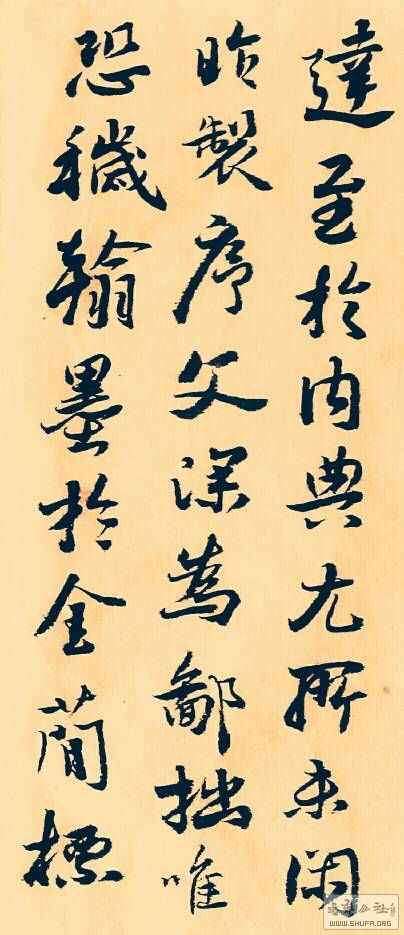 達至於内典尤所未閑
昨製序文深為鄙拙唯
恐穢翰墨於金簡標
WWW.SHUFA.ORG